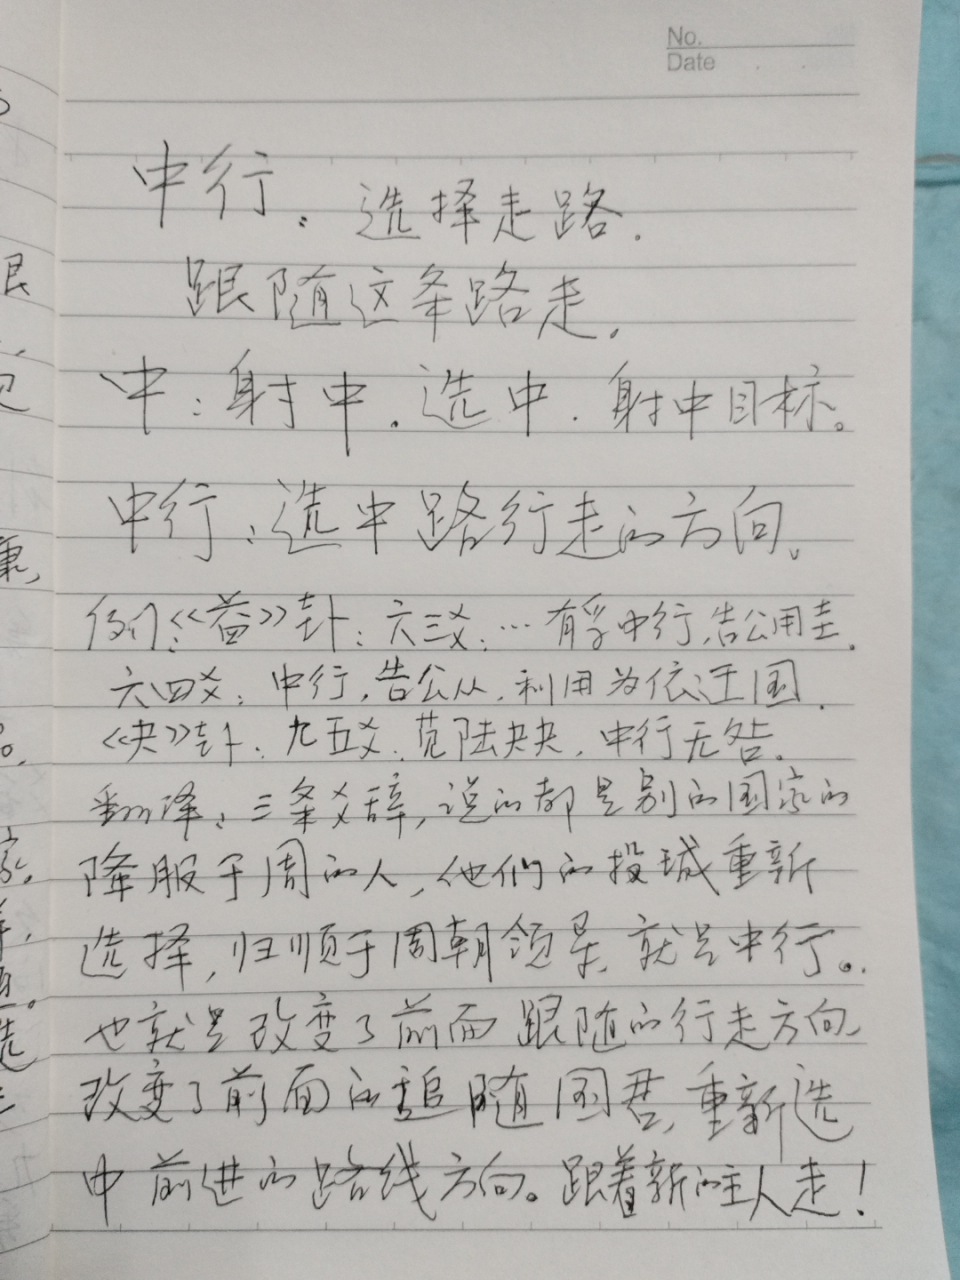 No.
Date
中行：选择走路.
跟随这条路走.
中：射中.选中.射中目标。
中行：选中路行走的方向、
例：《益》卦：六三爻：…有孚中行,告公用圭.
六四爻：中行,告公从,利用为依迁国.
《夬》卦：九五爻.苋陆夬夬,中行无咎.
翻译：三条爻辞,说的都是别的国家的
降服于周的人,他们的投城重新
选择,归顺于周朝领导,就是中行。
也就是改变了前面跟随的行走方向、
改变了前面的追随国君,重新选
中前进的路线方向。跟着新的主人走！